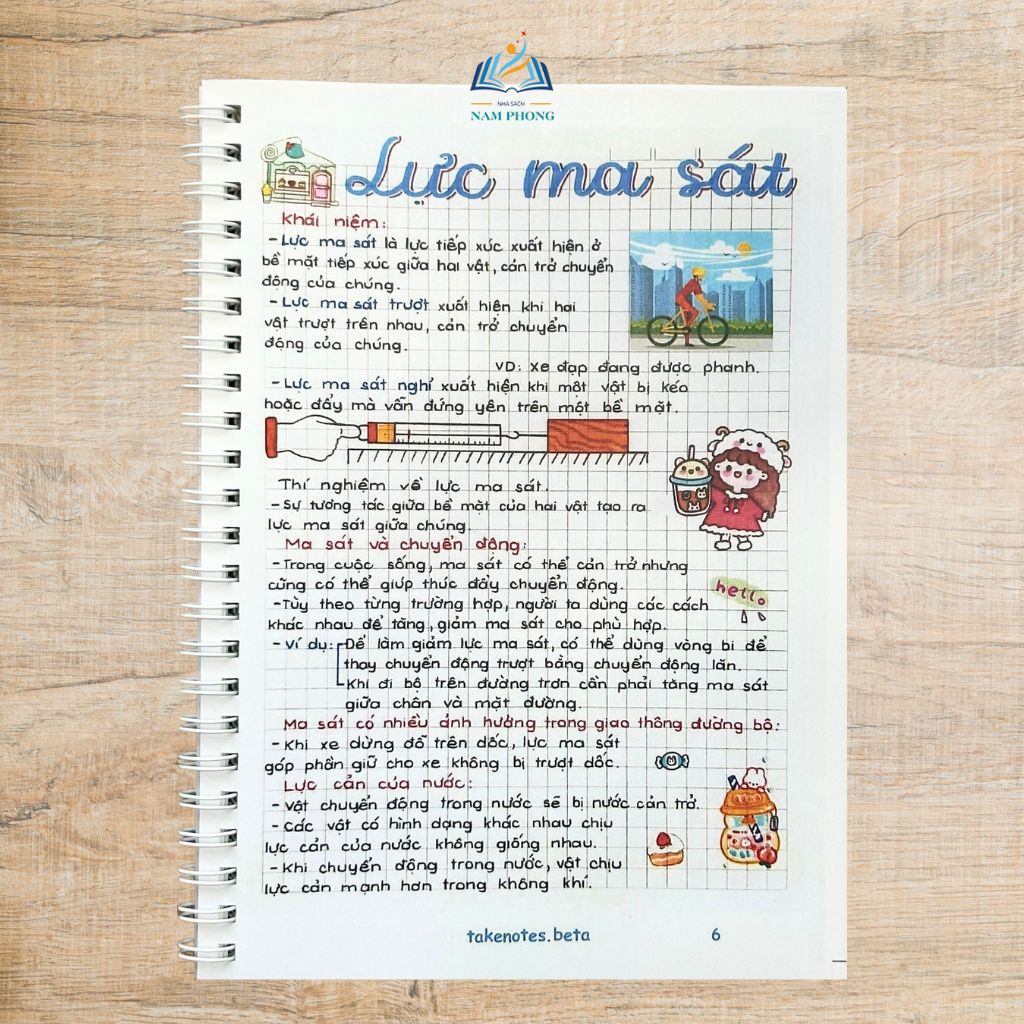 NHÀ SÁCH
NAM PHONG
Lực ma sát
Khái niệm:
- Lực ma sát là lực tiếp xúc xuất hiện ở
bề mặt tiếp xúc giữa hai vật, cản trở chuyển
động của chúng.
- Lực ma sát trượt xuất hiện khi hai
vật trượt trên nhau, cản trở chuyển
động của chúng.
VD: Xe đạp đang được phanh.
- Lực ma sát nghỉ xuất hiện khi một vật bị kéo
hoặc đẩy mà vẫn đứng yên trên một bề mặt.
Thí nghiệm về lực ma sát.
- Sự tương tác giữa bề mặt của hai vật tạo ra
lực ma sát giữa chúng.
Ma sát và chuyển động:
- Trong cuộc sống, ma sát có thể cản trở nhưng
cũng có thể giúp thúc đẩy chuyển động.
hello
- Tùy theo từng trường hợp, người ta dùng các cách
khác nhau để tăng, giảm ma sát cho phù hợp.
- Ví dụ: Để làm giảm lực ma sát, có thể dùng vòng bi để
thay chuyển động trượt bằng chuyển động lăn.
Khi đi bộ trên đường trơn cần phải tăng ma sát
giữa chân và mặt đường.
Ma sát có nhiều ảnh hưởng trong giao thông đường bộ:
- Khi xe dừng đỗ trên dốc, lực ma sát
góp phần giữ cho xe không bị trượt dốc.
Lực cản của nước:
- Vật chuyển động trong nước sẽ bị nước cản trở.
- Các vật có hình dạng khác nhau chịu
lực cản của nước không giống nhau.
- Khi chuyển động trong nước, vật chịu
lực cản mạnh hơn trong không khí.
takenotes.beta 6